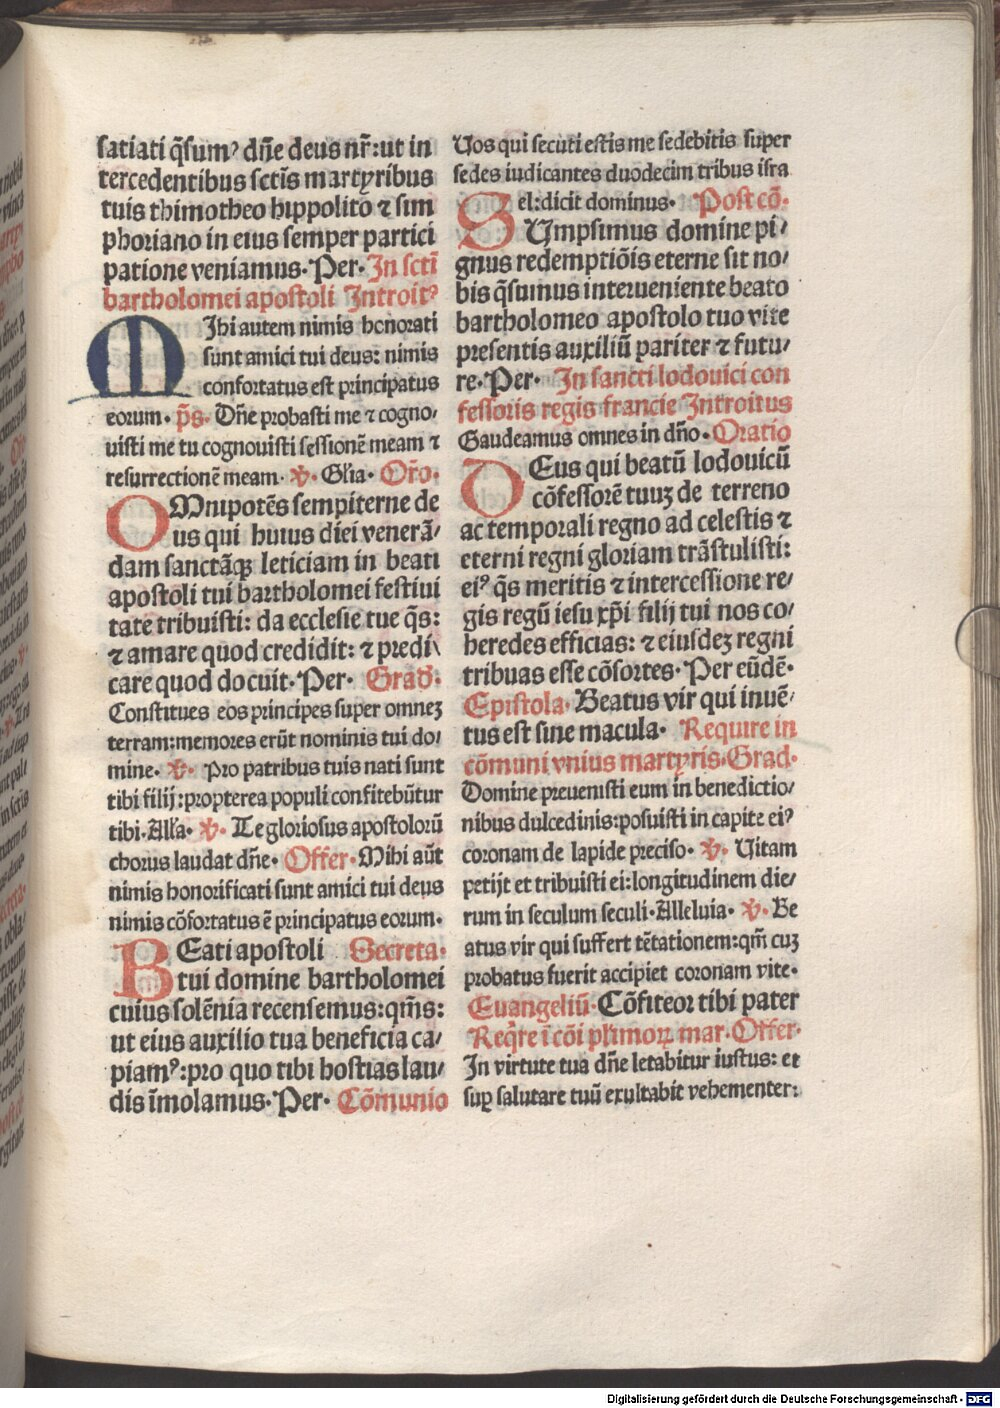 satiati q̃sumꝰ dñe deus nr̃: ut in
tercedentibus sctĩs martyribus
tuis thimotheo hippolito ⁊ sim
phoriano in eius semper partici
patione veniamus. Per. In sctĩ
bartholomei apostoli Introitꝰ
MIhi autem nimis honorati
sunt amici tui deus: nimis
confortatus est principatus
eorum. p̃s. Dñe probasti me ⁊ cogno/
uisti me tu cognouisti sessionẽ meam ⁊
resurrectionẽ meam. ℣. Glĩa. Or̃o.
OMnipotẽs sempiterne de
us qui huius diei venerã/
dam sanctãqꝫ leticiam in beati
apostoli tui bartholomei festiui
tate tribuisti: da ecclesie tue q̃s:
⁊ amare quod credidit: ⁊ predi\
care quod docuit. Per. Grad̃.
Constitues eos principes super omneʒ
terram: memores erũt nominis tui do/
mine. ℣. Pro patribus tuis nati sunt
tibi filij: propterea populi confitebũtur
tibi. Allˀa. ℣. Te gloriosus apostolorũ
chorus laudat dñe. Offer. Mihi aũt
nimis honorificati sunt amici tui deus
nimis cõfortatus ẽ principatus eorum.
BEati apostoli Secreta.
tui domine bartholomei
cuius solẽnia recensemus: qm̃s:
ut eius auxilio tua beneficia ca/
piamꝰ: pro quo tibi hostias lau/
dis ĩmolamus. Per. Cõmunio
Uos qui secuti estis me sedebitis super
sedes iudicantes duodecim tribus isra
el: dicit dominus. Post cõ.
SUmpsimus domine pi/
gnus redemptiõis eterne sit no/
bis q̃sumus interueniente beato
bartholomeo apostolo tuo vite
presentis auxiliũ pariter ⁊ futu/
re. Per. In sancti lodouici con
fessoris regis francie Introitus
Gaudeamus omnes in dño. Oratio
DEus qui beatũ lodouicũ
cõfessorẽ tuuʒ de terreno
ac temporali regno ad celestis ⁊
eterni regni gloriam trãstulisti:
eiꝰ q̃s meritis ⁊ intercessione re/
gis regũ iesu xp̃i filij tui nos co/
heredes efficias: ⁊ eiusdeʒ regni
tribuas esse cõsortes. Per eũdẽ.
Epistola. Beatus vir qui inuẽ/
tus est sine macula. Require in
cõmuni vnius martyris. Grad.
Domine preuenisti eum in benedictio/
nibus dulcedinis: posuisti in capite eiꝰ
coronam de lapide preciso. ℣. Uitam
petijt et tribuisti ei: longitudinem die/
rum in seculum seculi. Alleluia. ℣. Be
atus vir qui suffert tẽtationem: qm̃ cuʒ
probatus fuerit accipiet coronam vite.
Euangeliũ. Cõfiteor tibi pater
Req̃re ĩ cõi pl̃imoꝝ mar. Offer.
In virtute tua dñe letabitur iustus: et
suꝑ salutare tuũ exultabit vehementer:
Digitalisierung gefördert durch die Deutsche Forschungsgemeinschaft - DFG